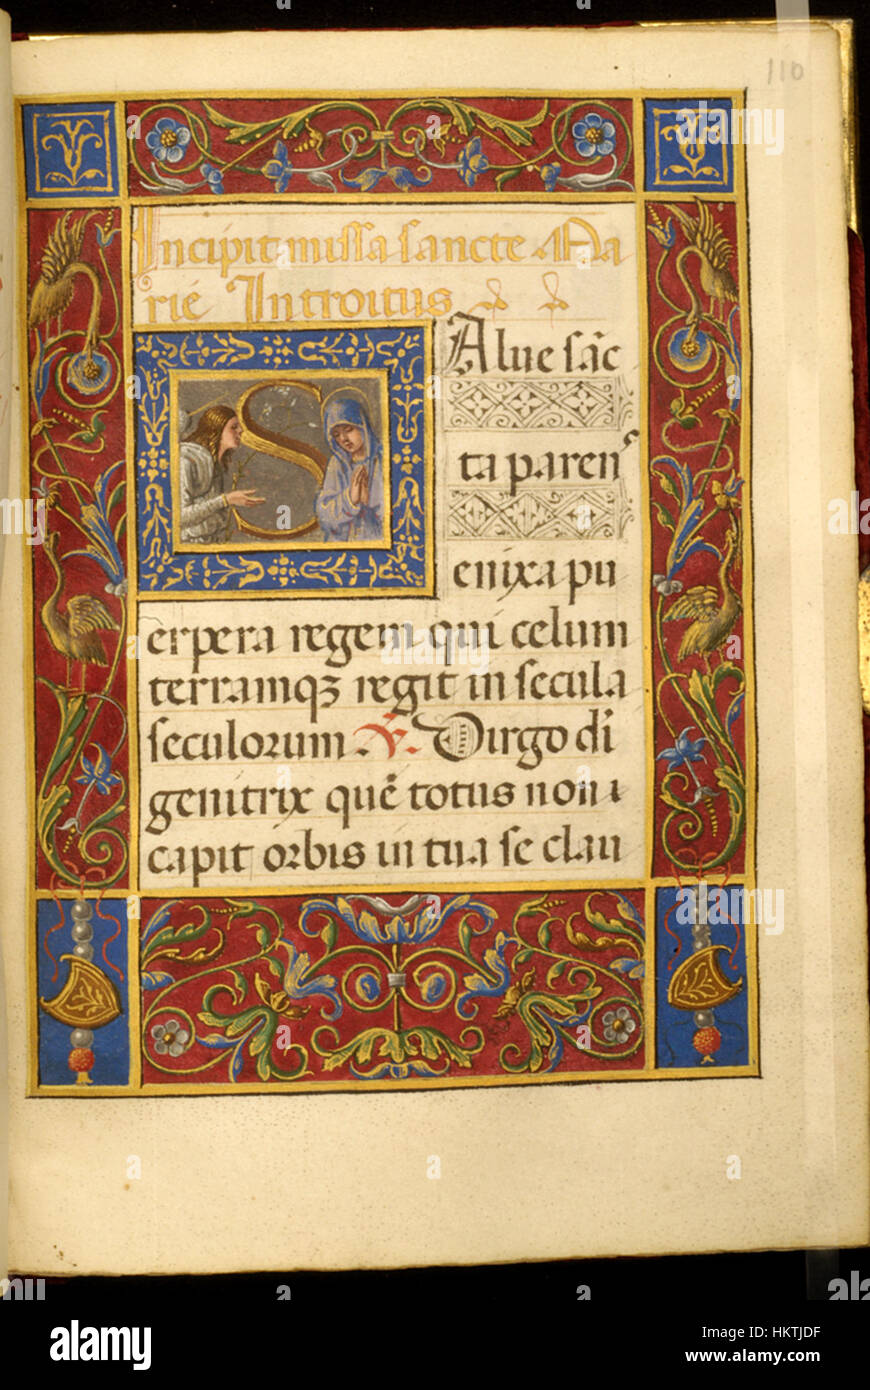 110
Incipit missa sancte Ma
rie Introitus
SAlue sāc
ta paren
enixa pu
erpera regem qui celum
terramqꝫ regit in secula
seculorum ℣. Virgo dī
genitrix quē totus non i
capit orbis in tua se clau
a alamy
alamy
Image ID: HKTJDF
www.alamy.com